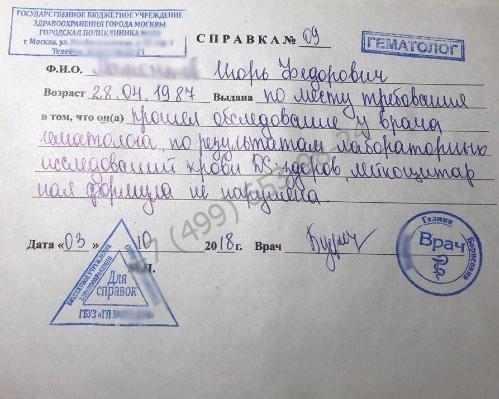 ГОСУДАРСТВЕННОЕ БЮДЖЕТНОЕ УЧРЕЖДЕНИЕ
ЗДРАВООХРАНЕНИЯ ГОРОДА МОСКВЫ
ГОРОДСКАЯ ПОЛИКЛИНИКА
г. Москва, ул.
СПРАВКА № 09
ГЕМАТОЛОГ
Ф.И.О. Игорь Федорович
Возраст 28.04.1987 Выдана по месту требования
в том, что он(а) прошел обследование у врача
гематолога, по результатам лабораторных
исследований крови DS: здоров, лейкоцитар
ная формула не нарушена.
+7 (499)
Дата «03» 10 2018 г. Врач
М.П.
БЮДЖЕТНОЕ УЧРЕЖДЕНИЕ
ЗДРАВООХРАНЕНИЯ
Для
справок
ГБУЗ «ГП
Галина
Борисовна
Врач